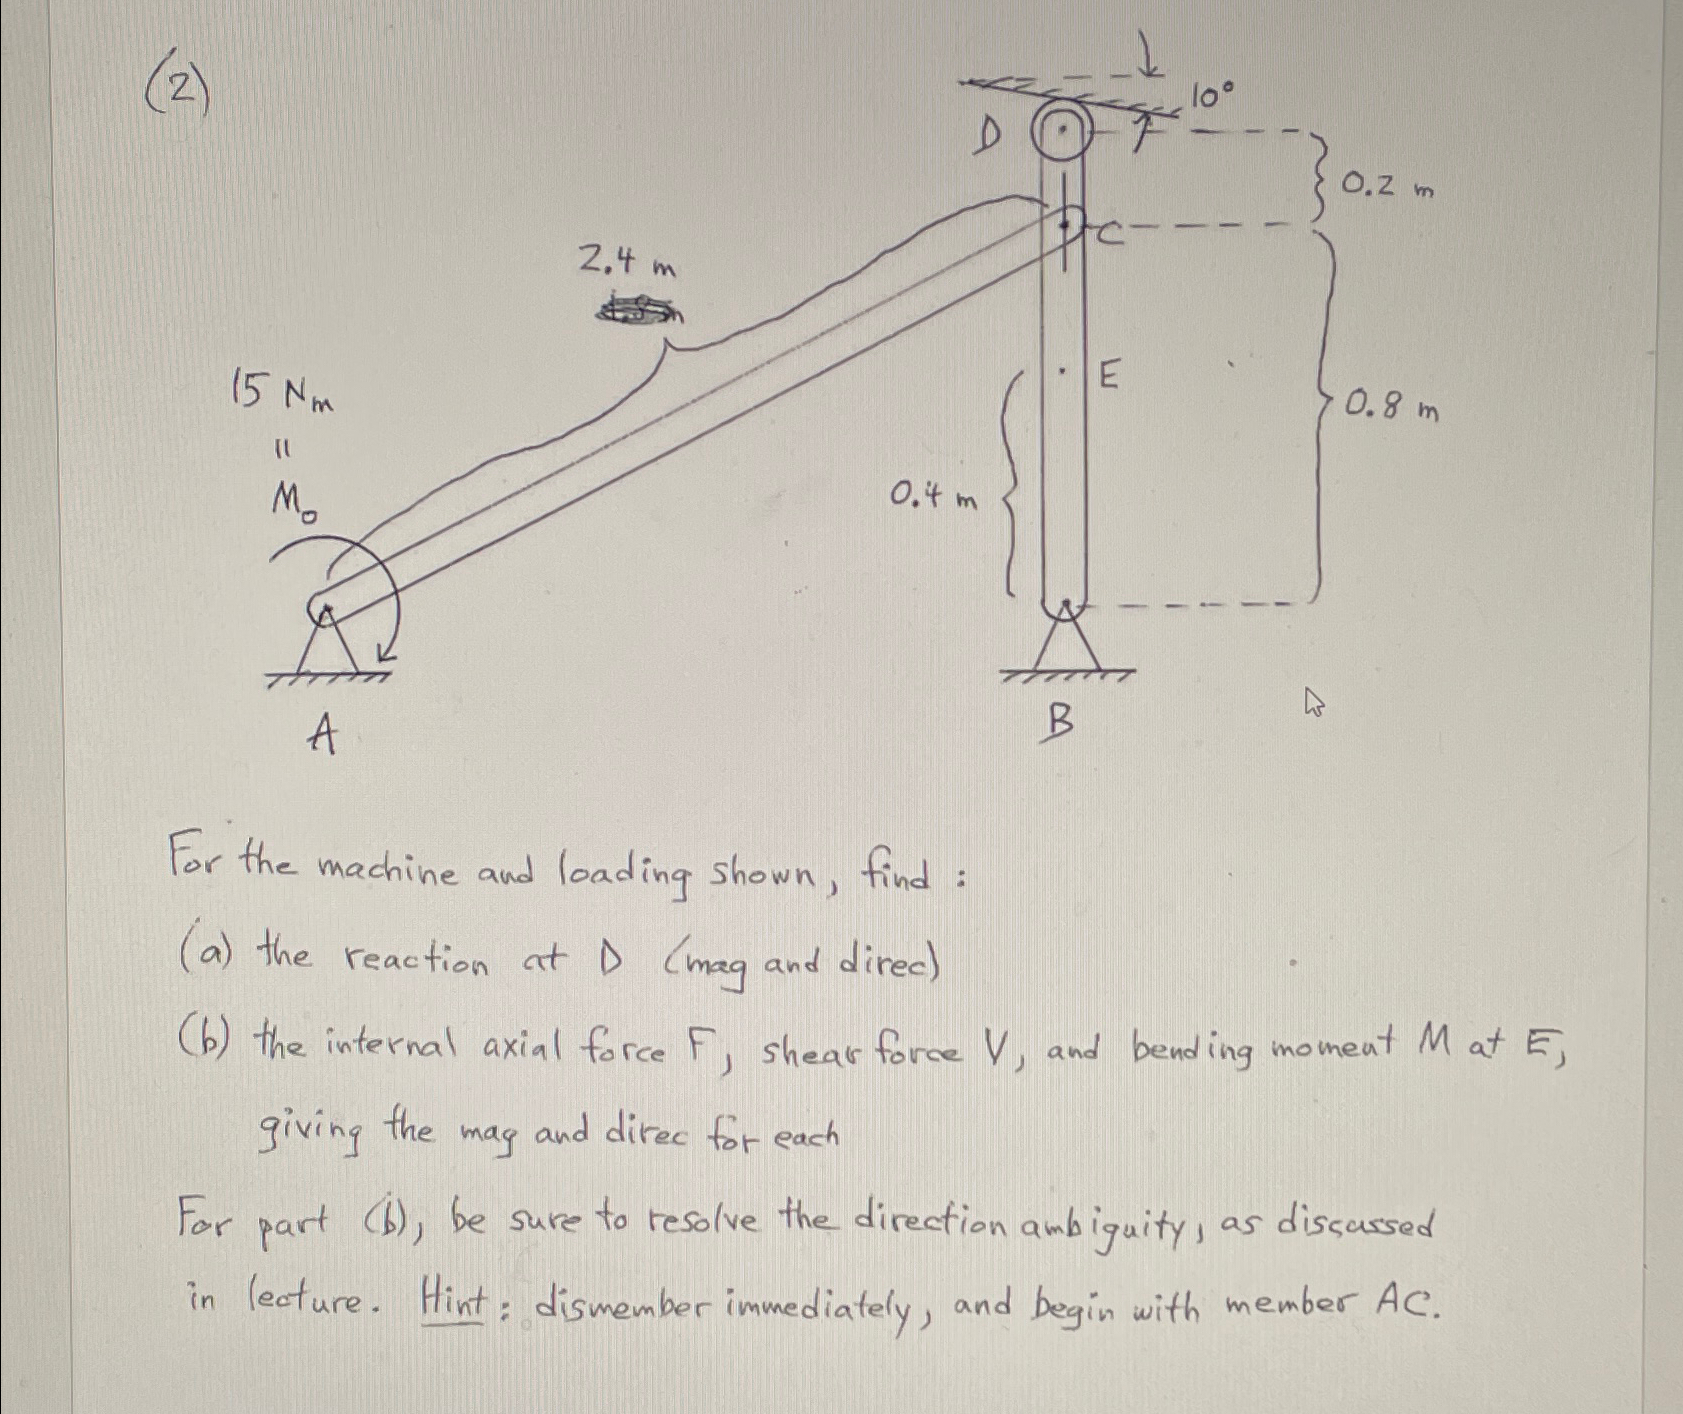 (2)
10°
D
0.2 m
C
2.4 m
E
15 Nm
=
M₀
0.8 m
0.4 m
A
B
For the machine and loading shown, find :
(a) the reaction at D (mag and direc)
(b) the internal axial force F, shear force V, and bending moment M at E,
giving the mag and direc for each
For part (b), be sure to resolve the direction ambiguity, as discussed
in lecture. Hint: dismember immediately, and begin with member AC.